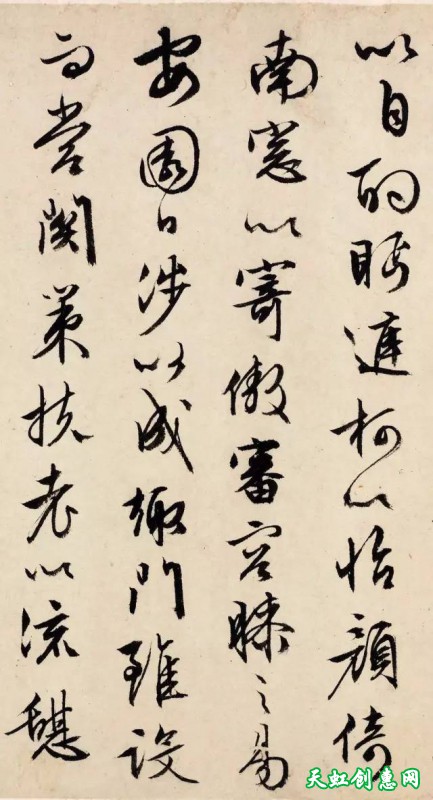 以自酌眄庭柯以怡顔倚
南窓以寄傲審容膝之易
安園日涉以成趣門雖設
而常関策扶老以流憩
天虹创惠网